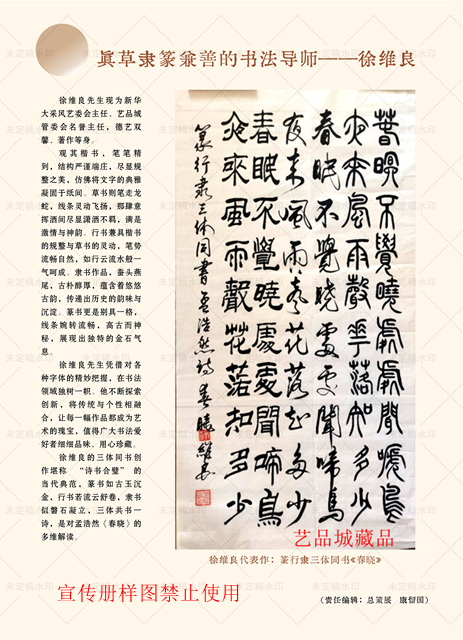 眞草隶篆兼善的书法导师——徐维良
徐维良先生现为新华
大采风艺委会主任、艺品城
管委会名誉主任，德艺双
馨、著作等身。
观其楷书，笔笔精
到，结构严谨端庄，尽显规
整之美，仿佛将文字的典雅
凝固于纸间。草书则笔走龙
蛇，线条灵动飞扬，那肆意
挥洒间尽显潇洒不羁，满是
激情与神韵。行书兼具楷书
的规整与草书的灵动，笔势
流畅自然，如行云流水般一
气呵成。隶书作品，蚕头燕
尾，古朴醇厚，蕴含着悠悠
古韵，传递出历史的韵味与
沉淀。篆书更是别具一格，
线条婉转流畅，高古而神
秘，展现出独特的金石气
息。
徐维良先生凭借对各
种字体的精妙把握，在书法
领域独树一帜。他不断探索
创新，将传统与个性相融
合，让每一幅作品都成为艺
术的瑰宝，值得广大书法爱
好者细细品味、用心珍藏。
徐维良的三体同书创
作堪称 “诗书合璧” 的
当代典范，篆书如古玉沉
金，行书若流云舒卷，隶书
似磐石凝立，三体共书一
诗，是对孟浩然《春晓》的
多维解读。
春眠不覺曉處處聞啼鳥
夜來風雨聲花落知多少
春眠不覺曉處處聞啼鳥
夜来風雨聲花落知多少
春眠不覺曉處處聞啼鳥
夜來風雨聲花落知多少
篆行隶三体同書孟浩然詩春曉維良
艺品城藏品
徐维良代表作：篆行隶三体同书《春晓》
宣传册样图禁止使用
（责任编辑：总策展 康留国）